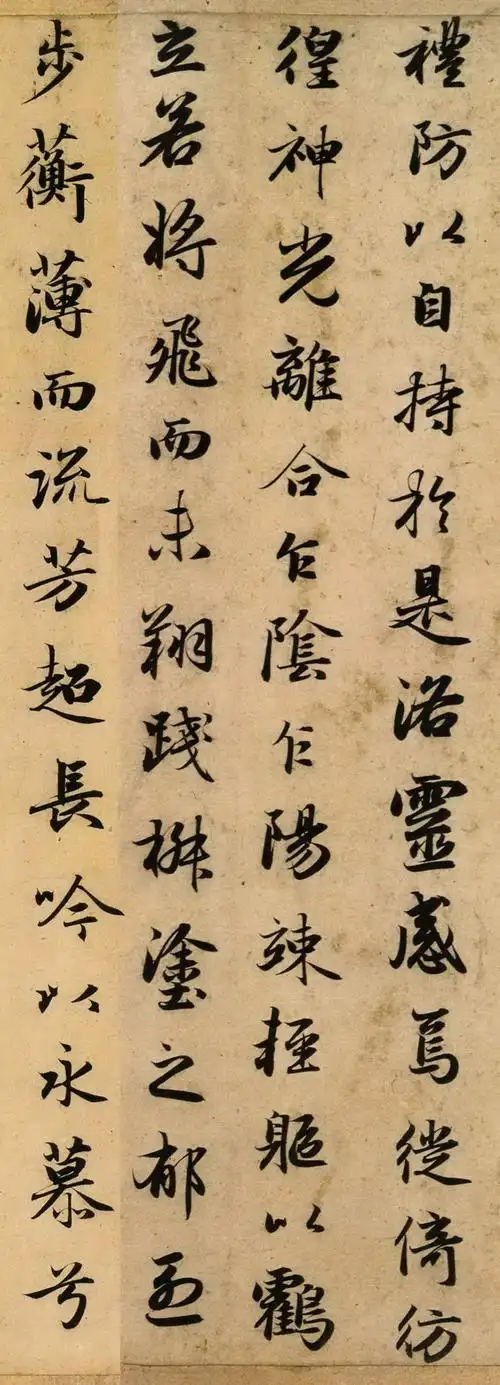 禮防以自持於是洛靈感焉徙倚彷
徨神光離合乍陰乍陽竦輕軀以鸖
立若將飛而未翔踐椒塗之郁烈
步蘅薄而流芳超長吟以永慕兮